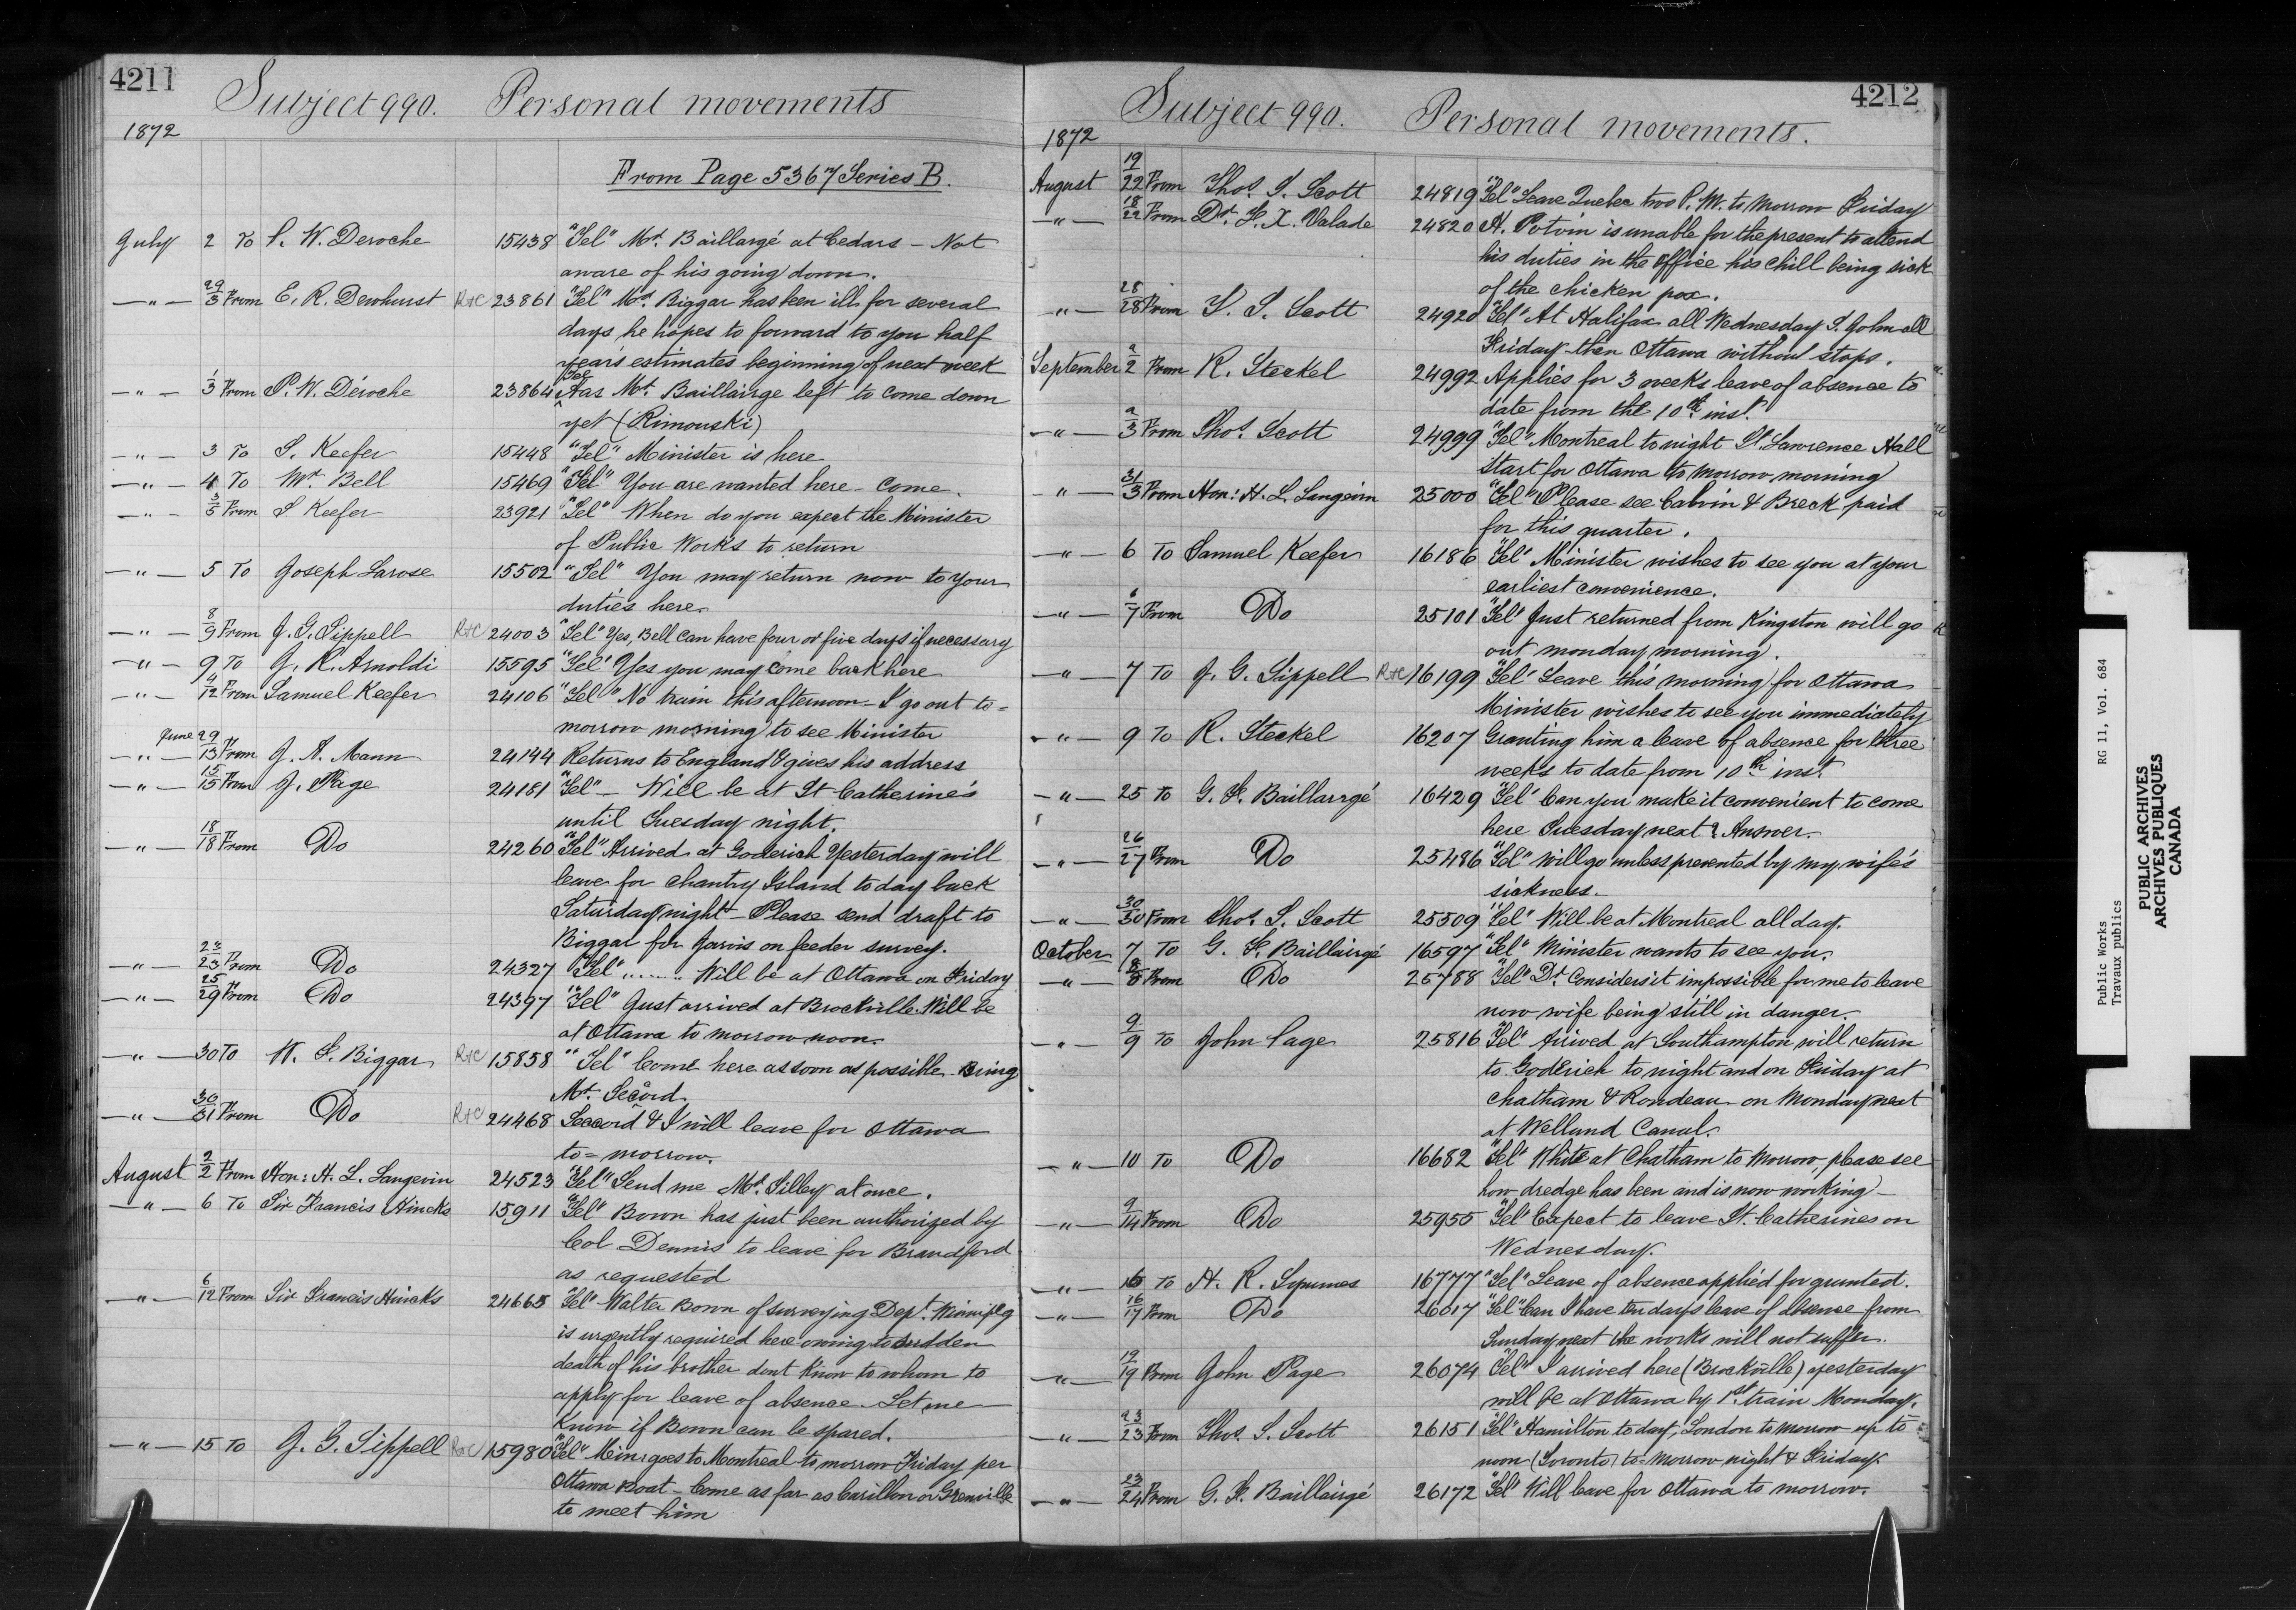 4211
Subject 990. Personal movements
1872
From Page 5367 Series B.
July 2 To P. W. Deroche 15438 "Tel" Mr. Baillargé at Cedars - Not
aware of his going down.
—"— 29/3 From E. R. Dewhurst R&C 23861 "Tel" Mr. Biggar has been ill for several
days he hopes to forward to you half
year's estimates beginning of next week
—"— 1/3 From P. W. Déroche 23864 "Tel" Has Mr. Baillairge left to come down
yet (Rimouski)
—"— 3 To S. Keefer 15448 "Tel" Minister is here
—"— 4 To Mr. Bell 15469 "Tel" You are wanted here - Come.
—"— 3/5 From S Keefer 23921 "Tel" When do you expect the Minister
of Public Works to return
—"— 5 To Joseph Larose 15502 "Tel" You may return now to your
duties here
—"— 8/9 From J. G. Sippell R&C 24003 "Tel" Yes, Bell can have four or five days if necessary
—"— 9 To J. R. Arnoldi 15595 "Tel" Yes you may come back here
—"— 9/12 From Samuel Keefer 24106 "Tel" No train this afternoon - I go out to=
morrow morning to see Minister
—"— June 29/13 From J. A. Mann 24144 Returns to England & gives his address
—"— 15/15 From J. Page 24181 "Tel" - Will be at St Catherine's
until Tuesday night.
—"— 18/18 From Do 24260 "Tel" Arrived at Goderich Yesterday will
leave for Chantry Island to day back
Saturday night - Please send draft to
Biggar for Jarvis on feeder survey.
—"— 23 From Do 24327 "Tel" ........ Will be at Ottawa on Friday
—"— 25/29 From Do 24397 "Tel" Just arrived at Brockville. Will be
at Ottawa to morrow noon.
—"— 30 To H. F. Biggar R&C 15858 "Tel" Come here as soon as possible. Bring
Mr. Secord.
—"— 30/31 From Do R&C 24468 Seccord & I will leave for Ottawa
to=morrow.
August 2/2 From Hon: H. L. Langevin 24523 "Tel" Send me Mr. Tilley at once.
—"— 6 To Sir Francis Hincks 15911 "Tel" Bown has just been authorized by
Col Dennis to leave for Brandford
as requested
—"— 6/12 From Sir Francis Hincks 24665 "Tel" Walter Bown of surveying Dept. Winnipeg
is urgently required here owing to sudden
death of his brother dont know to whom to
apply for leave of absence. Let me
know if Bown can be spared.
—"— 15 To J. G. Sippell R&C 15980 "Tel" Minr goes to Montreal to morrow Friday per
Ottawa Boat - Come as far as Carillon or Grenville
to meet him
4212
Subject 990. Personal movements.
1872
August 19/22 From Thos. S. Scott 24819 "Tel" Leave Quebec two P.M. to morrow Friday
—"— 18/22 From Dr. F. X. Valade 24820 H. Potvin is unable for the present to attend
his duties in the office his chill being sick
of the chicken pox.
—"— 28/28 From T. S. Scott 24920 "Tel" At Halifax all Wednesday S. John all
Friday then Ottawa without stops.
September 2/2 From R. Steckel 24992 Applies for 3 weeks leave of absence to
date from the 10th inst.
—"— 2/3 From Thos. Scott 24999 "Tel" Montreal to night St. Lawrence Hall
start for Ottawa to morrow morning
—"— 31/3 From Hon: H. L. Langevin 25000 "Tel" Please see Calvin & Breck paid
for this quarter.
—"— 6 To Samuel Keefer 16186 "Tel" Minister wishes to see you at your
earliest convenience.
—"— 6/7 From Do 25101 "Tel" Just returned from Kingston will go
out monday morning.
—"— 7 To J. G. Sippell R&C 16199 "Tel" Leave this morning for Ottawa
Minister wishes to see you immediately
—"— 9 To R. Steckel 16207 Granting him a leave of absence for three
weeks to date from 10th inst.
—"— 25 To G. F. Baillargé 16429 "Tel" Can you make it convenient to come
here Tuesday next? Answer.
—"— 26/27 From Do 25486 "Tel" Will go unless prevented by my wife's
sickness.
—"— 30/30 From Thos. S. Scott 25509 "Tel" Will be at Montreal all day.
October 7 To G. F. Baillairgé 16597 "Tel" Minister wants to see you.
—"— 8/8 From Do 25788 "Tel" Dr. Considers it impossible for me to leave
now wife being still in danger.
—"— 9/9 To John Page 25816 "Tel" Arrived at Southampton will return
to Goderich to night and on Friday at
Chatham & Rondeau on Monday next
at Welland Canal.
—"— 10 To Do 16682 "Tel" White at Chatham to morrow, please see
how dredge has been and is now working -
—"— 9/14 From Do 25955 "Tel" Expect to leave St. Catherines on
Wednesday.
—"— 16 To H. R. Symmes 16777 "Tel" Leave of absence applied for granted.
—"— 16/17 From Do 26017 "Tel" Can I have ten days leave of absence from
Sunday next the works will not suffer.
—"— 19/19 From John Page 26074 "Tel" I arrived here (Brockville) yesterday
will be at Ottawa by 1st train Monday.
—"— 23/23 From Thos. S. Scott 26151 "Tel" Hamilton to day, London to morrow up to
noon (Toronto) to=morrow night & Friday.
—"— 23/24 From G. F. Baillairgé 26172 "Tel" Will leave for Ottawa to morrow.
Public Works RG 11, Vol. 684
Travaux publics
PUBLIC ARCHIVES
ARCHIVES PUBLIQUES
CANADA